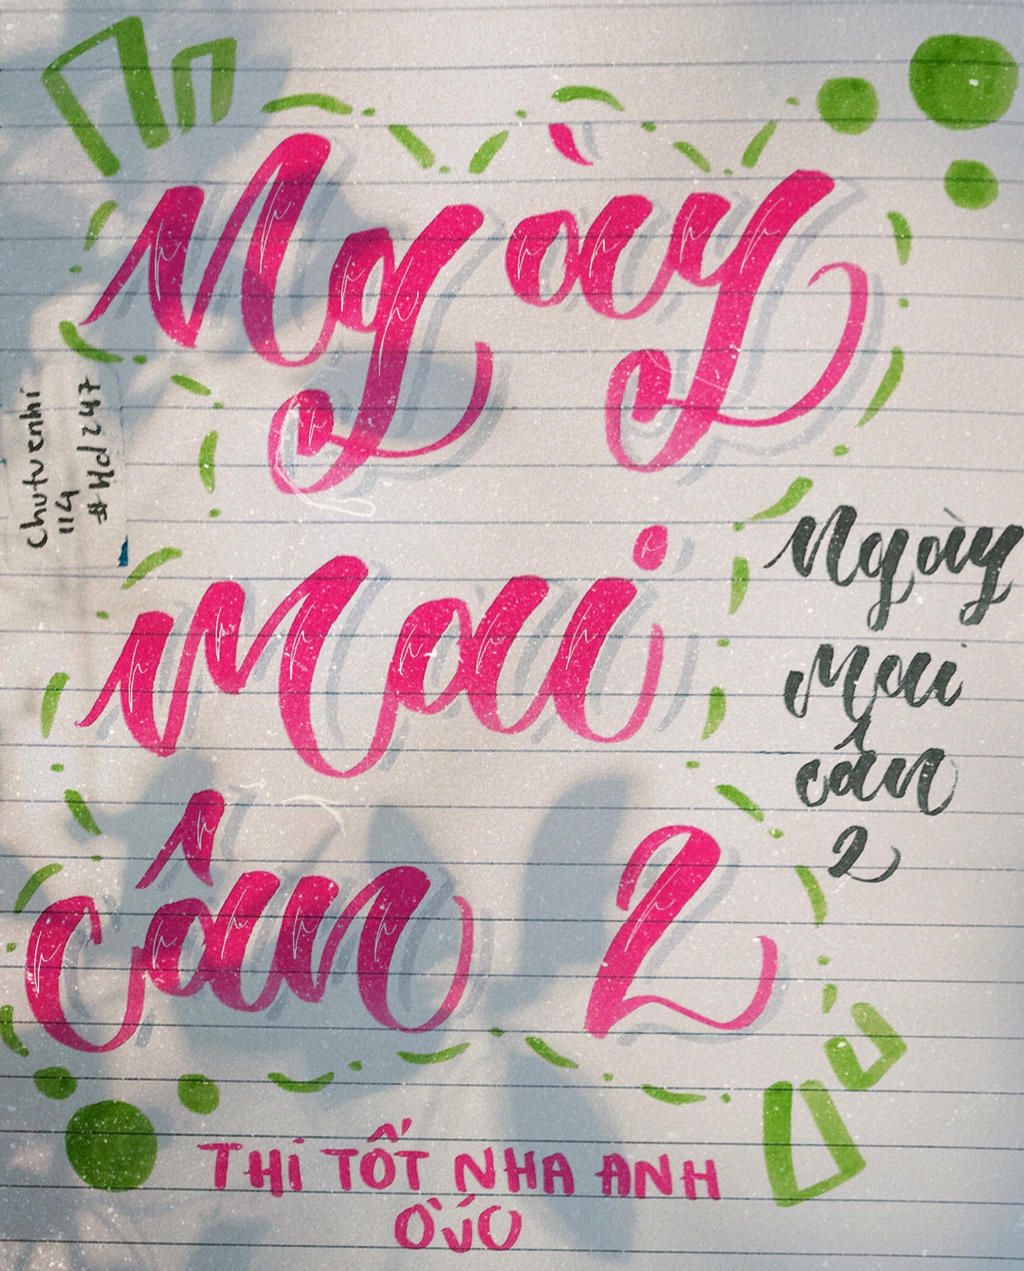 Ngày
Mai
cân 2
chutuenhi
114
#Hd247
Ngày
Mai
cân
2
THI TỐT NHA ANH
ÒvÓ